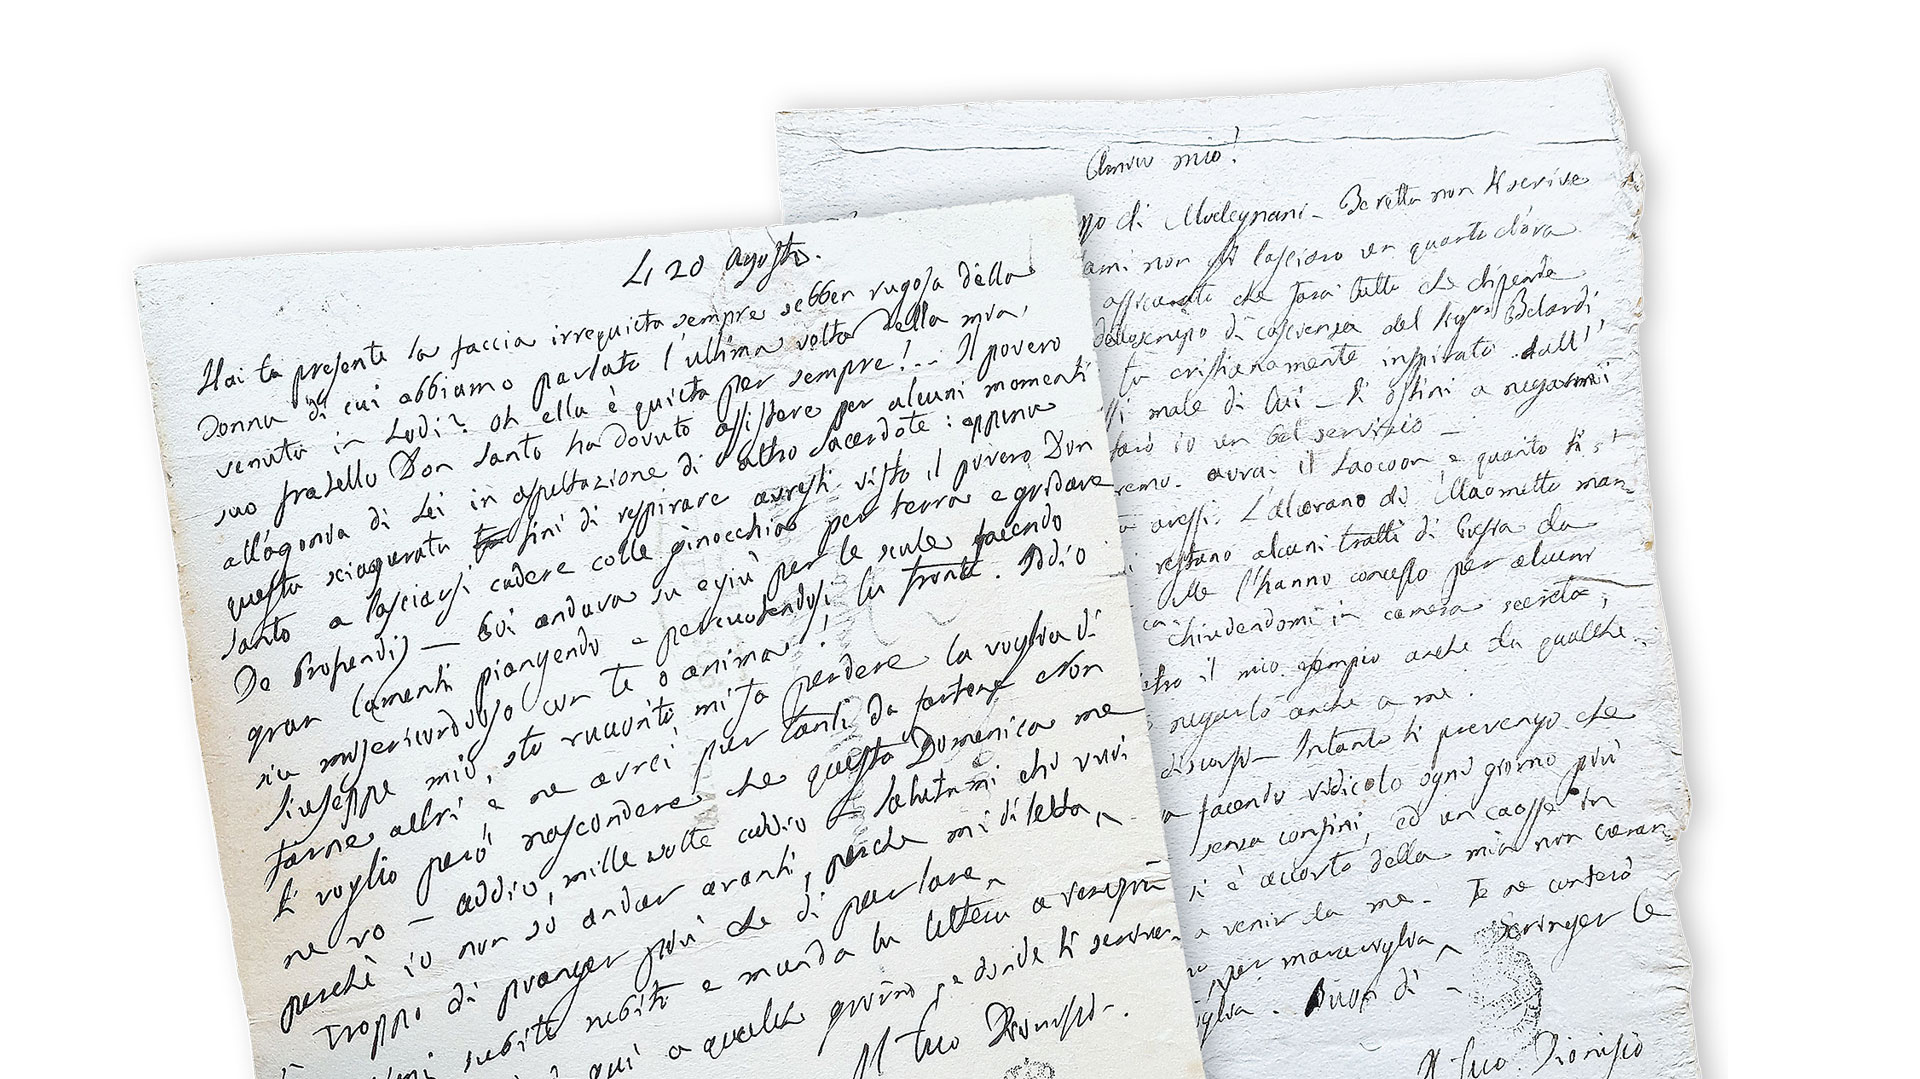 Li 20 Agosto.
Hai tu presente la faccia irrequieta sempre sebben rugosa della
Donna di cui abbiamo parlato l'ultima volta della mia
venuta in Lodi? Oh ella è quieta per sempre! .. Il povero
suo fratello Don Santo ha dovuto assistere per alcuni momenti
all'agonia di Lei in aspettazione di altro Sacerdote: appena
questa sciagurata finì di respirare avresti visto il povero Don
Santo a lasciarsi cadere colle ginocchia per terra e gridare
De Profundis — Poi andava su e giù per le scale facendo
gran lamenti piangendo e percuotendosi la fronte. Iddio
sia misericordioso con te o anima!
Giuseppe mio, sto racconto mi fa perdere la voglia di
farne altri, e ne avrei per tanti da fartene. Non
ti voglio però nascondere che questa Domenica me
ne vo — addio, mille volte addio — salutami chi vuoi
perchè io non sò andar avanti, perchè mi diletta
troppo di pianger più che di parlare
subito subito e manda la lettera a
quì a qualche giorno e donde ti scriver
Il tuo Dionisio.
Amico mio!
di Modegnani — Beretta non ti scrive
non gli lasciano un quarto d'ora
assicurati che farà tutto che dipende
di coscienza del Sigr. Belardi
tu cristianamente inspirato dall'
male di Lui — ti ostini a negarmi
io un bel servizio —
avrai il Laocoon e quanto ti
avessi. L'alcorano di Maometto man
restano alcuni tratti di
l'hanno concesso per alcuni
chiudendomi in camera secreta,
il mio esempio anche da qualche
negarlo anche a me.
discorsi — Intanto ti prevengo che
facendo ridicolo ogni giorno più
senza confini, ed un caosse in
è accorto della mia non curan
a venir da me. Te ne conterò
per maraviglia
Buon dì —
Il tuo Dionisio